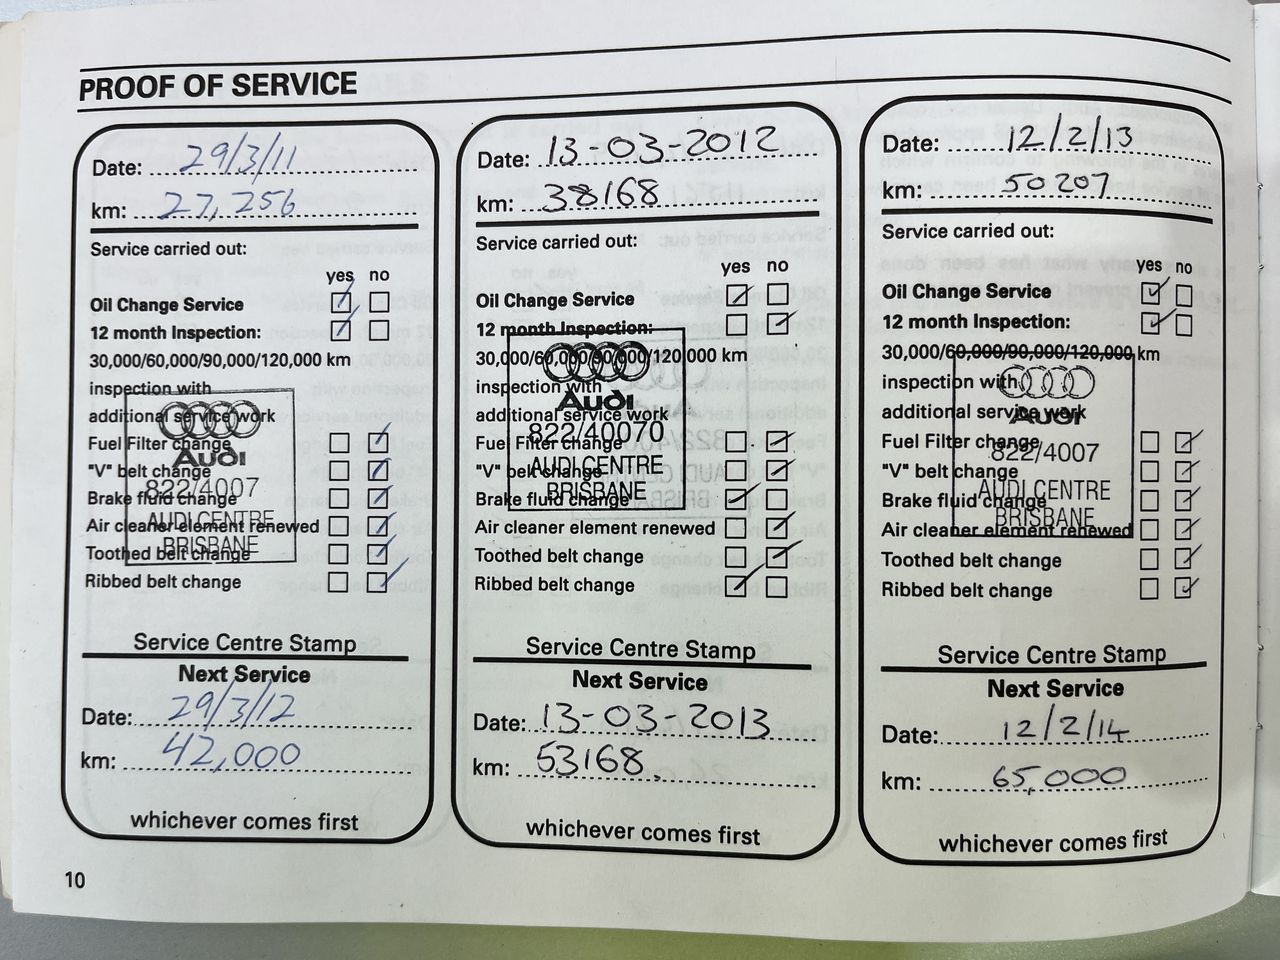 PROOF OF SERVICE
Date: 29/3/11
km: 27,256
Service carried out:
yes no
Oil Change Service
12 month Inspection:
30,000/60,000/90,000/120,000 km
inspection with
additional service work
Fuel Filter change
"V" belt change
Brake fluid change
Air cleaner element renewed
Toothed belt change
Ribbed belt change
Audi
822/4007
AUDI CENTRE
BRISBANE
Service Centre Stamp
Next Service
Date: 29/3/12
km: 42,000
whichever comes first
Date: 13-03-2012
km: 38168
Service carried out:
yes no
Oil Change Service
12 month Inspection:
30,000/60,000/90,000/120,000 km
inspection with
additional service work
Fuel Filter change
"V" belt change
Brake fluid change
Air cleaner element renewed
Toothed belt change
Ribbed belt change
Audi
822/40070
AUDI CENTRE
BRISBANE
Service Centre Stamp
Next Service
Date: 13-03-2013
km: 53168.
whichever comes first
Date: 12/2/13
km: 50207
Service carried out:
yes no
Oil Change Service
12 month Inspection:
30,000/60,000/90,000/120,000 km
inspection with
additional service work
Fuel Filter change
"V" belt change
Brake fluid change
Air cleaner element renewed
Toothed belt change
Ribbed belt change
Audi
822/4007
AUDI CENTRE
BRISBANE
Service Centre Stamp
Next Service
Date: 12/2/14
km: 65,000
whichever comes first
10